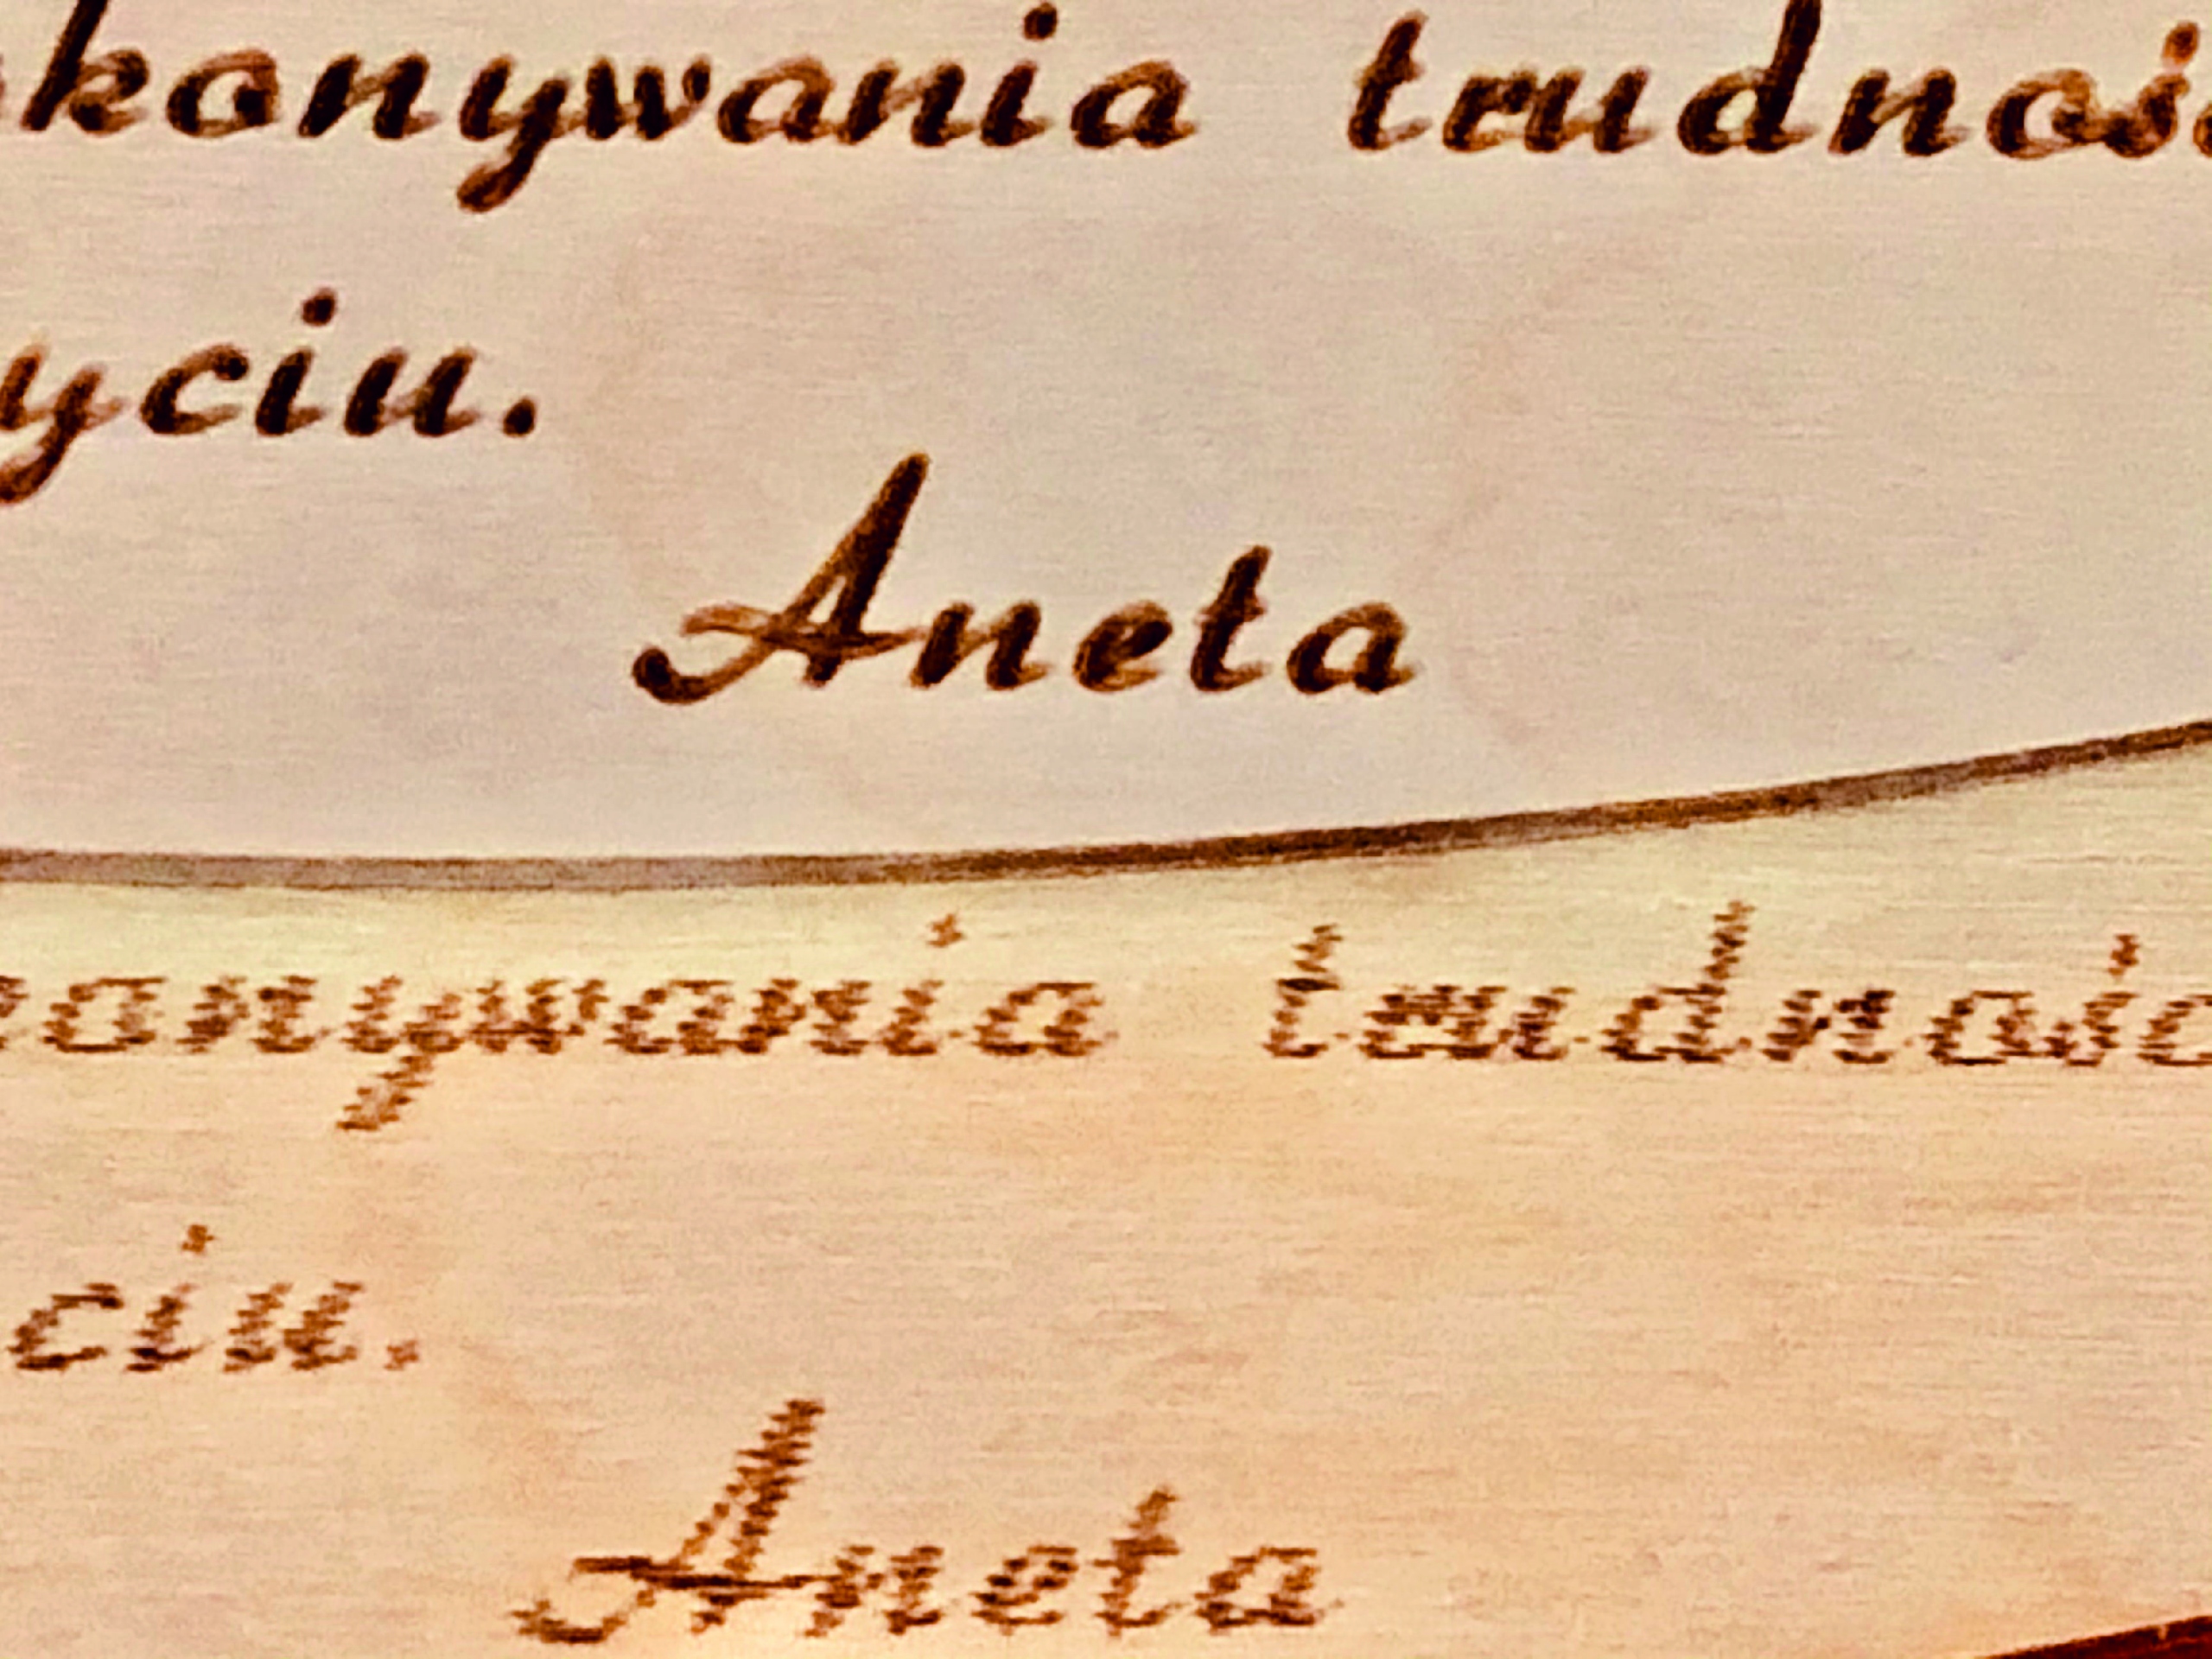 konywania trudnoś
yciu.
Aneta
onywania trudnośc
ciu.
Aneta